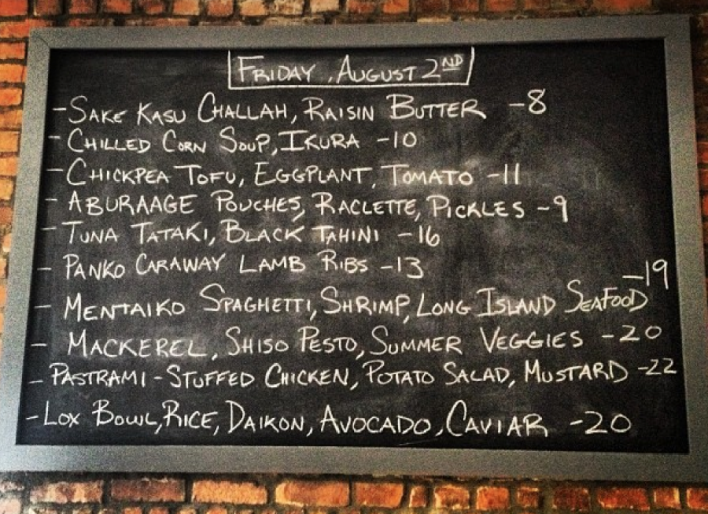 FRIDAY, AUGUST 2ND
- SAKE KASU CHALLAH, RAISIN BUTTER - 8
- CHILLED CORN SOUP, IKURA - 10
- CHICKPEA TOFU, EGGPLANT, TOMATO - 11
- ABURAAGE POUCHES, RACLETTE, PICKLES - 9
- TUNA TATAKI, BLACK TAHINI - 16
- PANKO CARAWAY LAMB RIBS - 13
- MENTAIKO SPAGHETTI, SHRIMP, LONG ISLAND SEAFOOD - 19
- MACKEREL, SHISO PESTO, SUMMER VEGGIES - 20
- PASTRAMI-STUFFED CHICKEN, POTATO SALAD, MUSTARD - 22
- LOX BOWL, RICE, DAIKON, AVOCADO, CAVIAR - 20